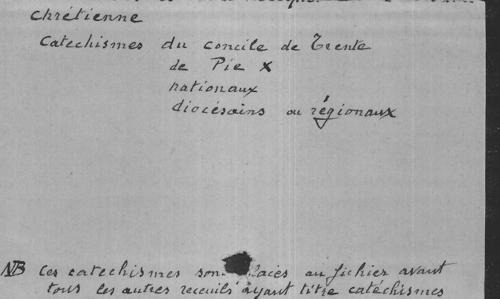 chrétienne
Catechismes du concile de Trente
de Pie X
nationaux
diocésains ou régionaux
NB Ces catechismes sont placés au fichier avant
tous les autres recueils ayant titre catéchismes